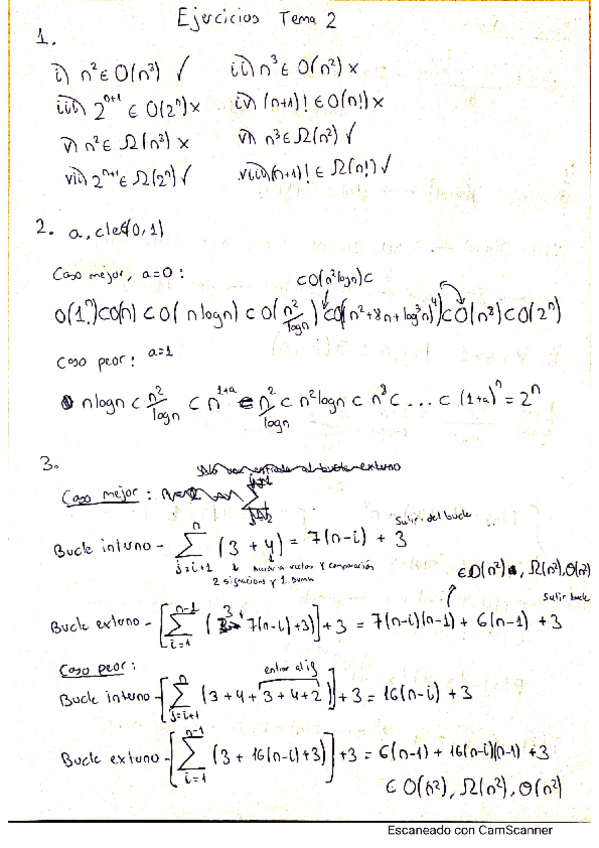 Ejercicios Tema 2
1.
i) n² ∈ O(n³) ✓ ii) n³ ∈ O(n²) ×
iii) 2ⁿ⁺¹ ∈ O(2ⁿ) × iv) (n+1)! ∈ O(n!) ×
v) n² ∈ Ω(n³) × vi) n³ ∈ Ω(n²) ✓
vii) 2ⁿ⁺¹ ∈ Ω(2ⁿ) ✓ viii) (n+1)! ∈ Ω(n!) ✓
2.
Caso mejor, a=0:
⊂O(n²logn)⊂
O(1ⁿ)⊂O(n)⊂O(nlogn)⊂O(n²/logn)⊂O((n²+8n+log³n)⁴)⊂O(n⁸)⊂O(2ⁿ)
Caso peor: a=1
nlogn ⊂ n²/logn ⊂ n¹⁺ᵃ n²/logn ⊂ n²logn ⊂ n⁸ ⊂ ... ⊂ (1+a)ⁿ = 2ⁿ
3.
Caso mejor:
Salir del bucle
Bucle interno - Σⁿⱼ₌ᵢ₊₁ (3 + 4) = 7(n-i) + 3
vector y comparación
2 signaciones y 1 suma
∈O(n²), Ω(n²), Θ(n²)
Salir bucle
Bucle externo - [Σⁿ⁻¹ᵢ₌₁ (3 7(n-i)+3)]+3 = 7(n-i)(n-1) + 6(n-1) +3
Caso peor: entrar al if
Bucle interno - [Σⁿⱼ₌ᵢ₊₁ (3+4+3+4+2)]+3 = 16(n-i) +3
Bucle externo - [Σⁿ⁻¹ᵢ₌₁ (3 + 16(n-i)+3)]+3 = 6(n-1) + 16(n-i)(n-1) +3
∈ O(n²), Ω(n²), Θ(n²)
Escaneado con CamScanner